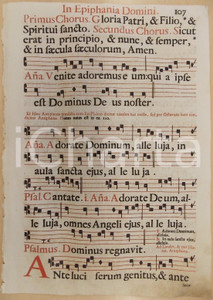 In Epiphania Domini. 107
Primus Chorus. Gloria Patri, & Filio, * &
Spiritui sancto. Secundus Chorus. Sicut
erat in principio, & nunc, & semper, *
& in sæcula sæculorum, Amen.
Aña. Venite adoremus e um qui a ipse
est Do minus De us noster.
Aña. A dorate Dominum, alle luja, in
aula sancta ejus, al le lu ja.
Psal. Cantate. i. Aña. A dorate De um, al-
le luja, omnes Angeli ejus, al le lu ja.
Psalmus. Dominus regnavit.
Ante luci ferum genitus, & ante